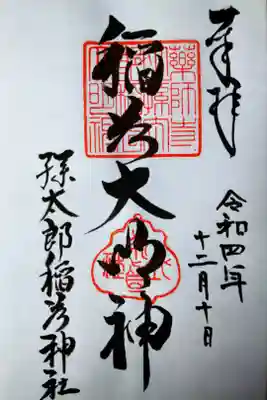 奉拝
令和四年
十二月十日
稲荷大明神
孫太郎稲荷神社